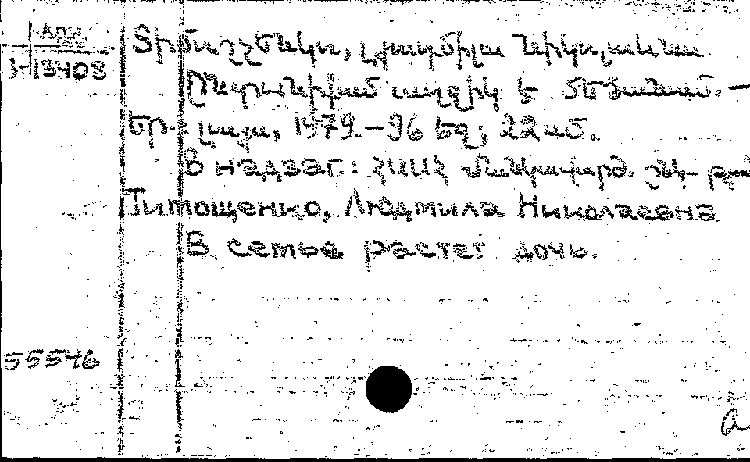 АПИ
Տիմոշչենկո, Լյուդմիլա Նիկոլաևնա
Ընտանիքում աղջիկ է մեծանում. —
Եր.: Լույս, 1979. — 96 էջ; 22 սմ.
В надзаг.: ՀՍՍՀ մանկավարժ.
Тимощенко, Людмила Николаевна
В семье растет дочь.
55546